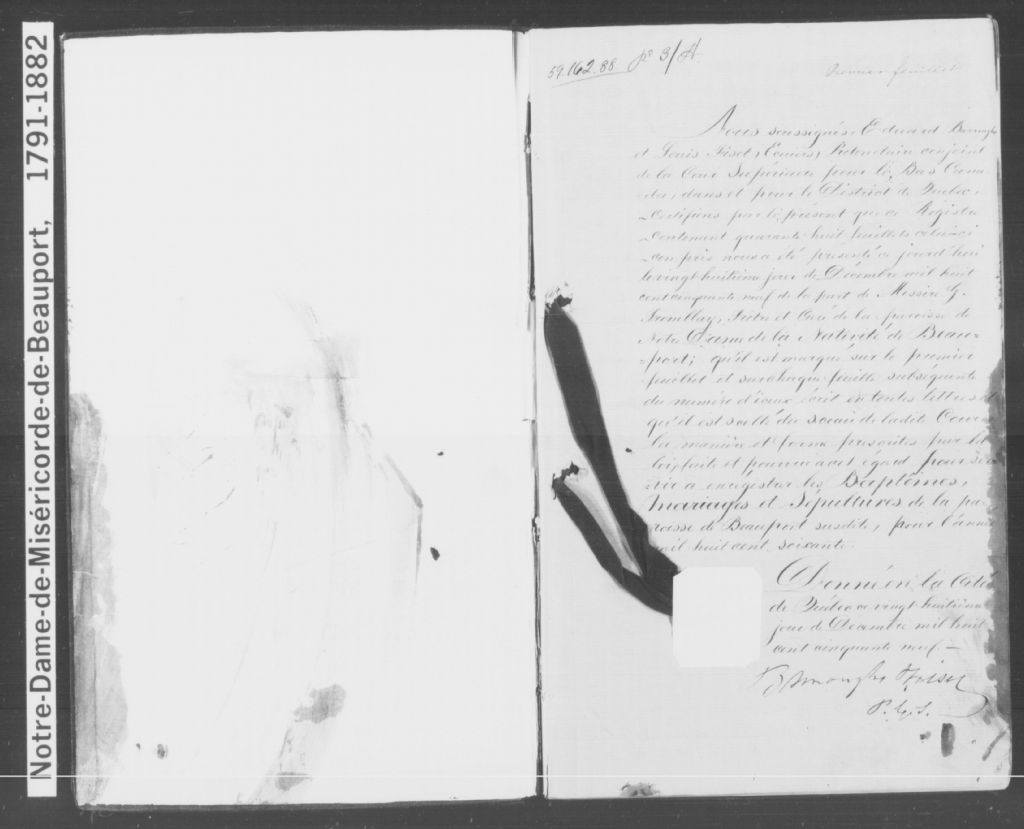 Notre-Dame-de-Miséricorde-de-Beauport, 1791-1882
59.162.88 pc 3/A
Premier feuillet
Nous soussignés, Edward Burroughs
et Louis Fiset, Ecuiers, Protonotaire conjoint
de la Cour Supérieure pour le Bas Cana-
da, dans et pour le District de Québec,
Certifions par le présent que ce Régistre
Contenant quarante huit feuillets celui-ci
compris nous a été présenté ce jourd'hui
le vingt huitième jour de Décembre mil huit
cent cinquante neuf de la part de Messire G.
Tremblay, Prêtre et Curé de la paroisse de
Notre Dame de la Nativité de Beau-
port; qu'il est marqué sur le premier
feuillet et sur chaque feuille subséquente
du numéro d'iceux écrit en toutes lettres et
qu'il est scellé du sceau de ladite Cour
la manière et forme prescrites par les
loix faite et pourvue à cet égard pour ser-
vir à enrégistrer les Baptêmes,
Mariages et Sépultures de la pa-
roisse de Beauport susdite, pour l'année
mil huit cent soixante.
Donné en la Cité
de Québec ce vingt huitième
jour de Décembre mil huit
cent cinquante neuf. —
Burroughs & Fiset
P. C. S.